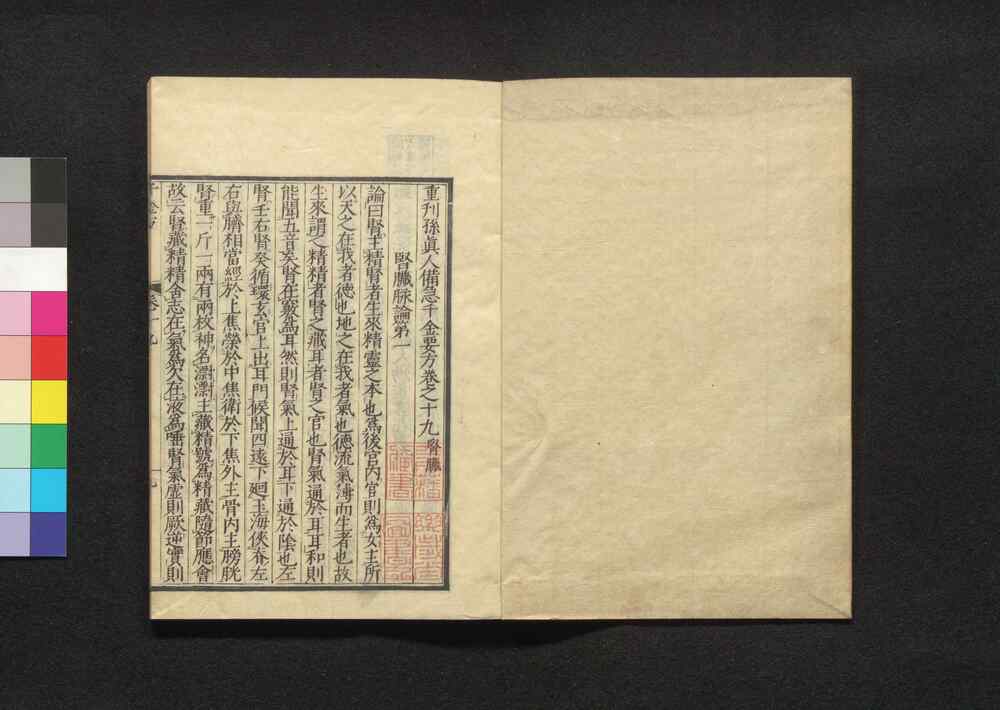 重刊孫眞人備急千金要方卷之十九 腎臟
腎臟脉論第一
論曰腎主精腎者生來精靈之本也爲後宮内官則爲女主所
以天之在我者德也地之在我者氣也德流氣薄而生者也故
生來謂之精精者腎之藏耳者腎之官也腎氣通於耳耳和則
能聞五音矣腎在竅爲耳然則腎氣上通於耳下通於陰也左
腎壬右腎癸循環玄宮上出耳門候聞四遠下廻玉海俠脊左
右與臍相當經於上焦榮於中焦衛於下焦外主骨内主膀胱
腎重一斤一兩有兩枚神名㵝㵝主藏精號爲精藏隨節應會
故云腎藏精精舍志在氣爲欠在液爲唾腎氣虚則厥逆實則